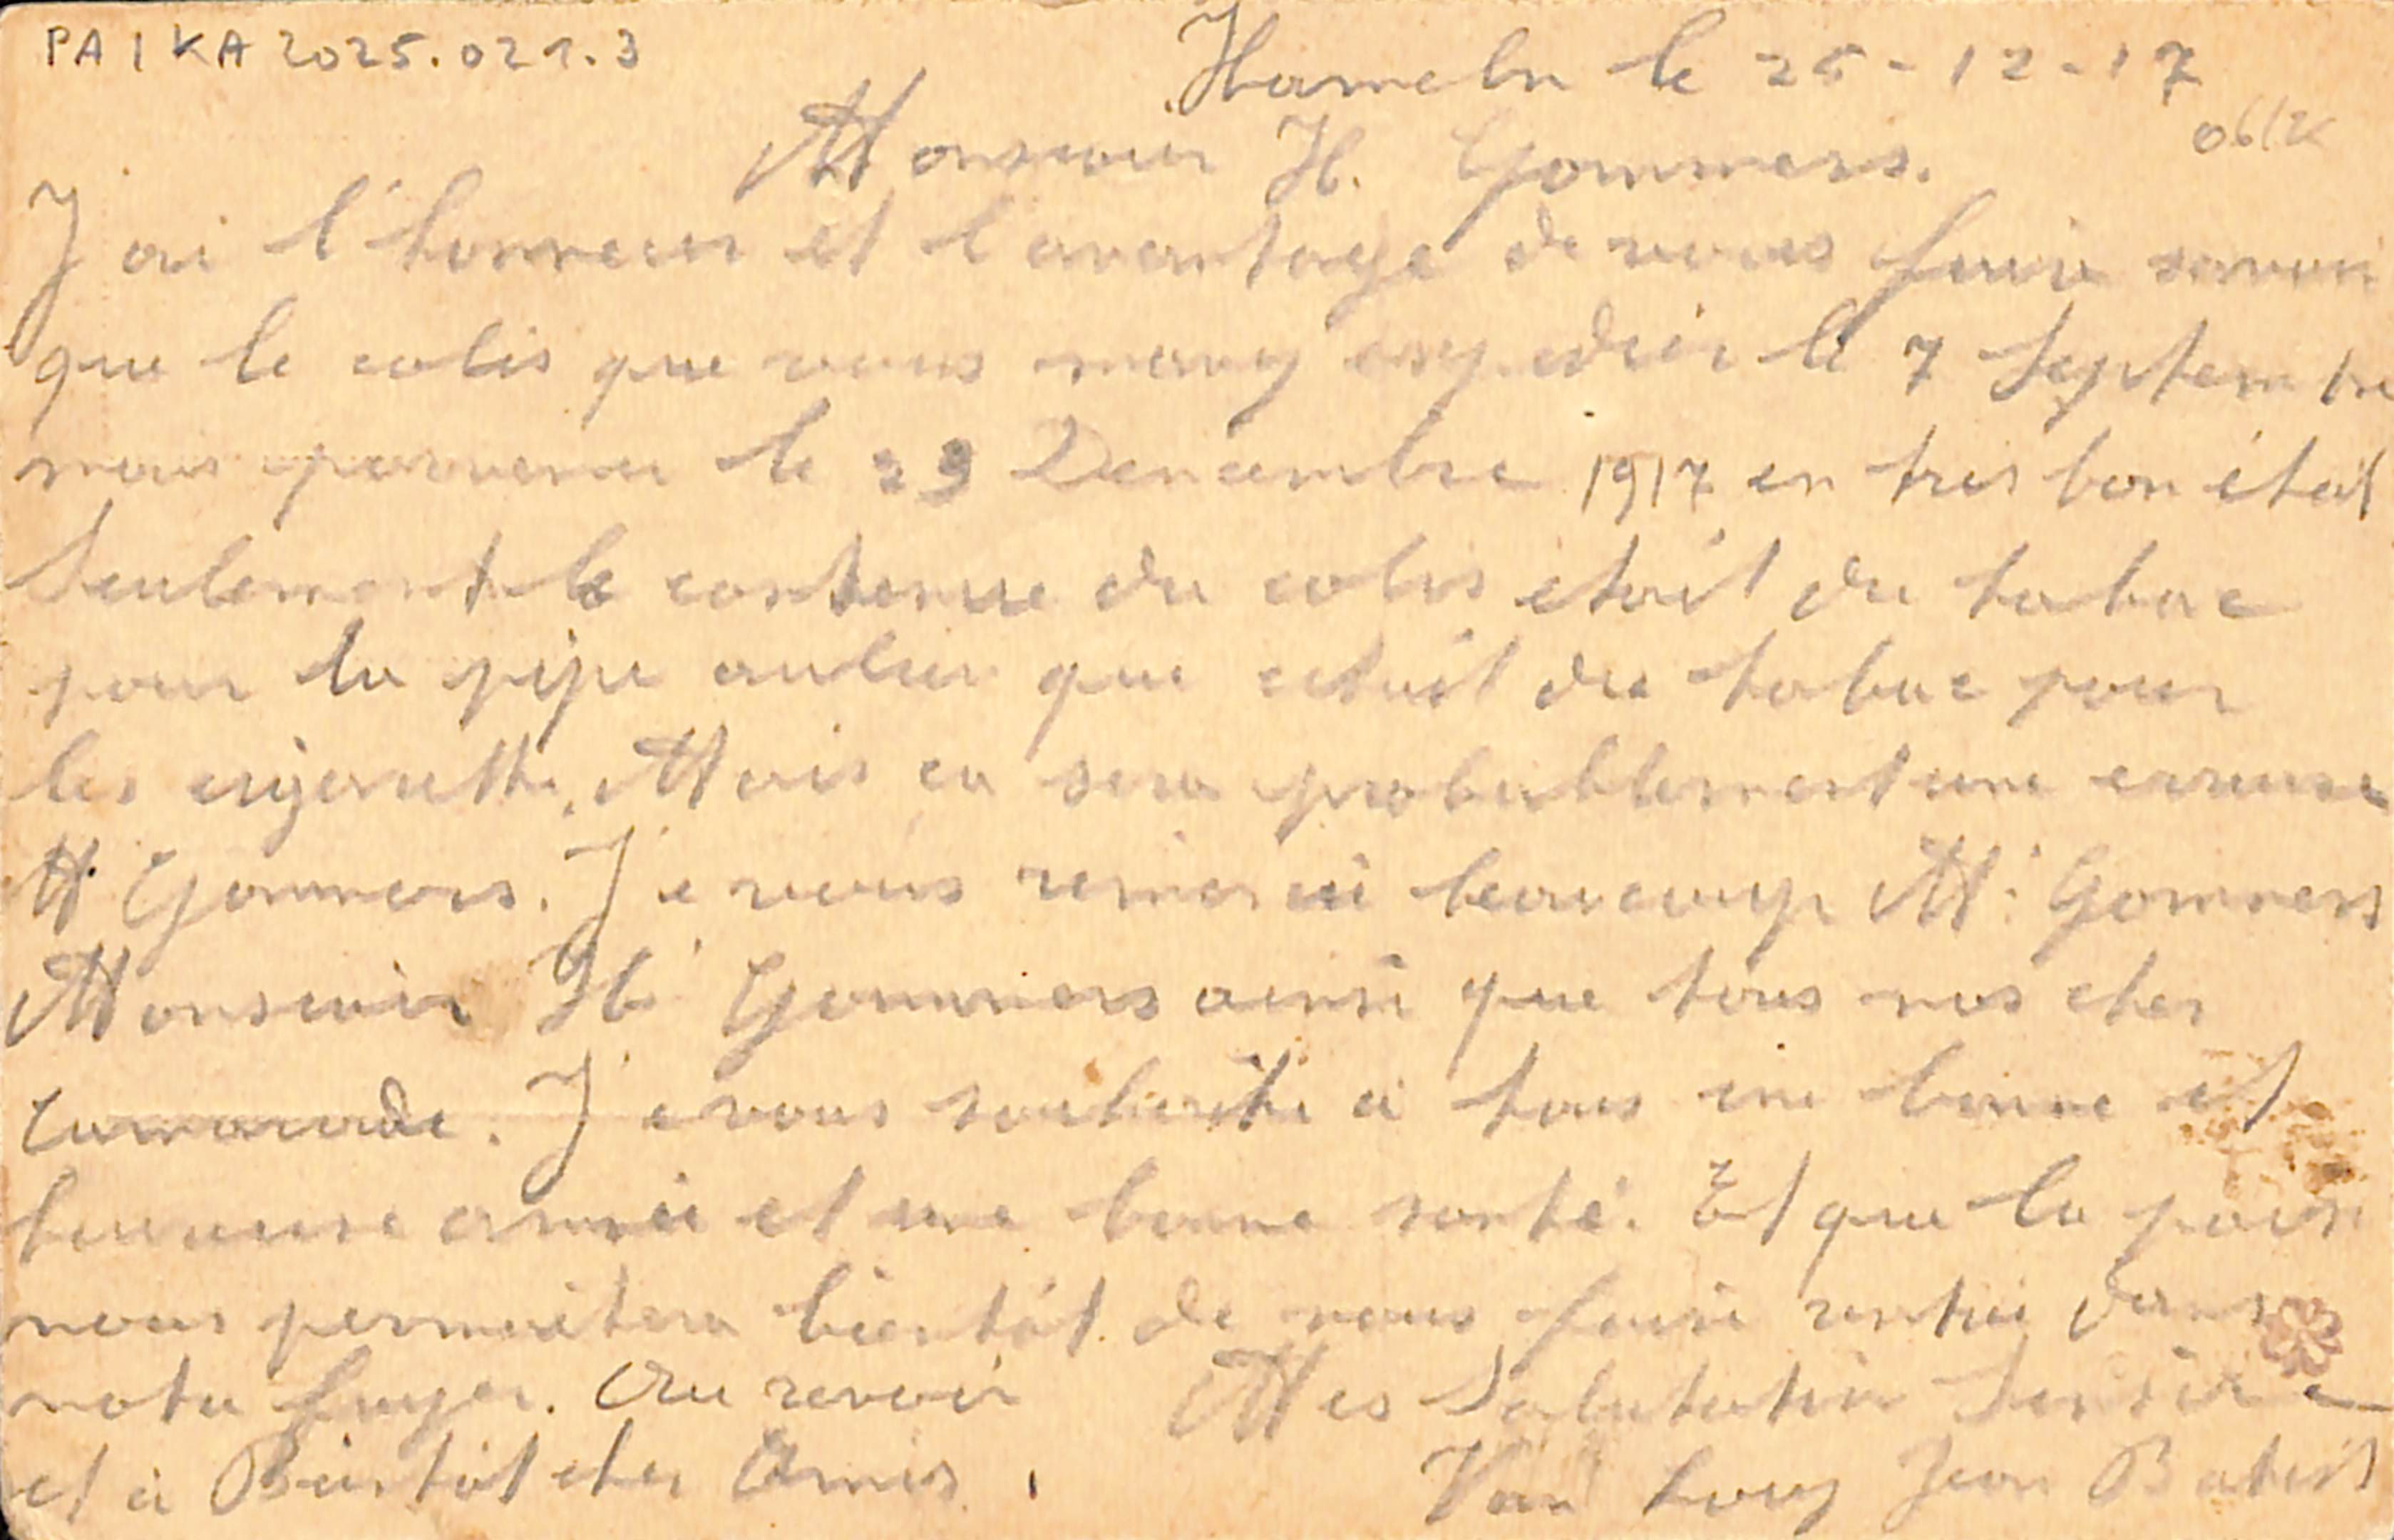 PAIKA 2025.021.3
Hameln le 25-12-17
Monsieur H. Gommers.
J'ai l'honneur et l'avantage de vous faire savoir
que le colis que vous mavez le 7 Septembre
nous parvenu le 23 Dencembre 1917 en tres bon état
Seulement le contenue du colis etait du tabac
pour la pipe aulieu que cetait du tabac pour
les Mais ca sera probabllement une erreure
M. Gommers. Je vous remercie beaucoup M. Gommers
Monsieur H. Gommers ainsi que tous nos cher
Camarade. Je vous souhaite a tous une bonne et
heureuse année et une bonne santé. Et que la paix
nous permeitera bientôt de nous faire rentrée dans
notre foyer. Au revoir Mes Salutation Sensère
et a Bientôt cher Amis.
Van Looy Jean Batist